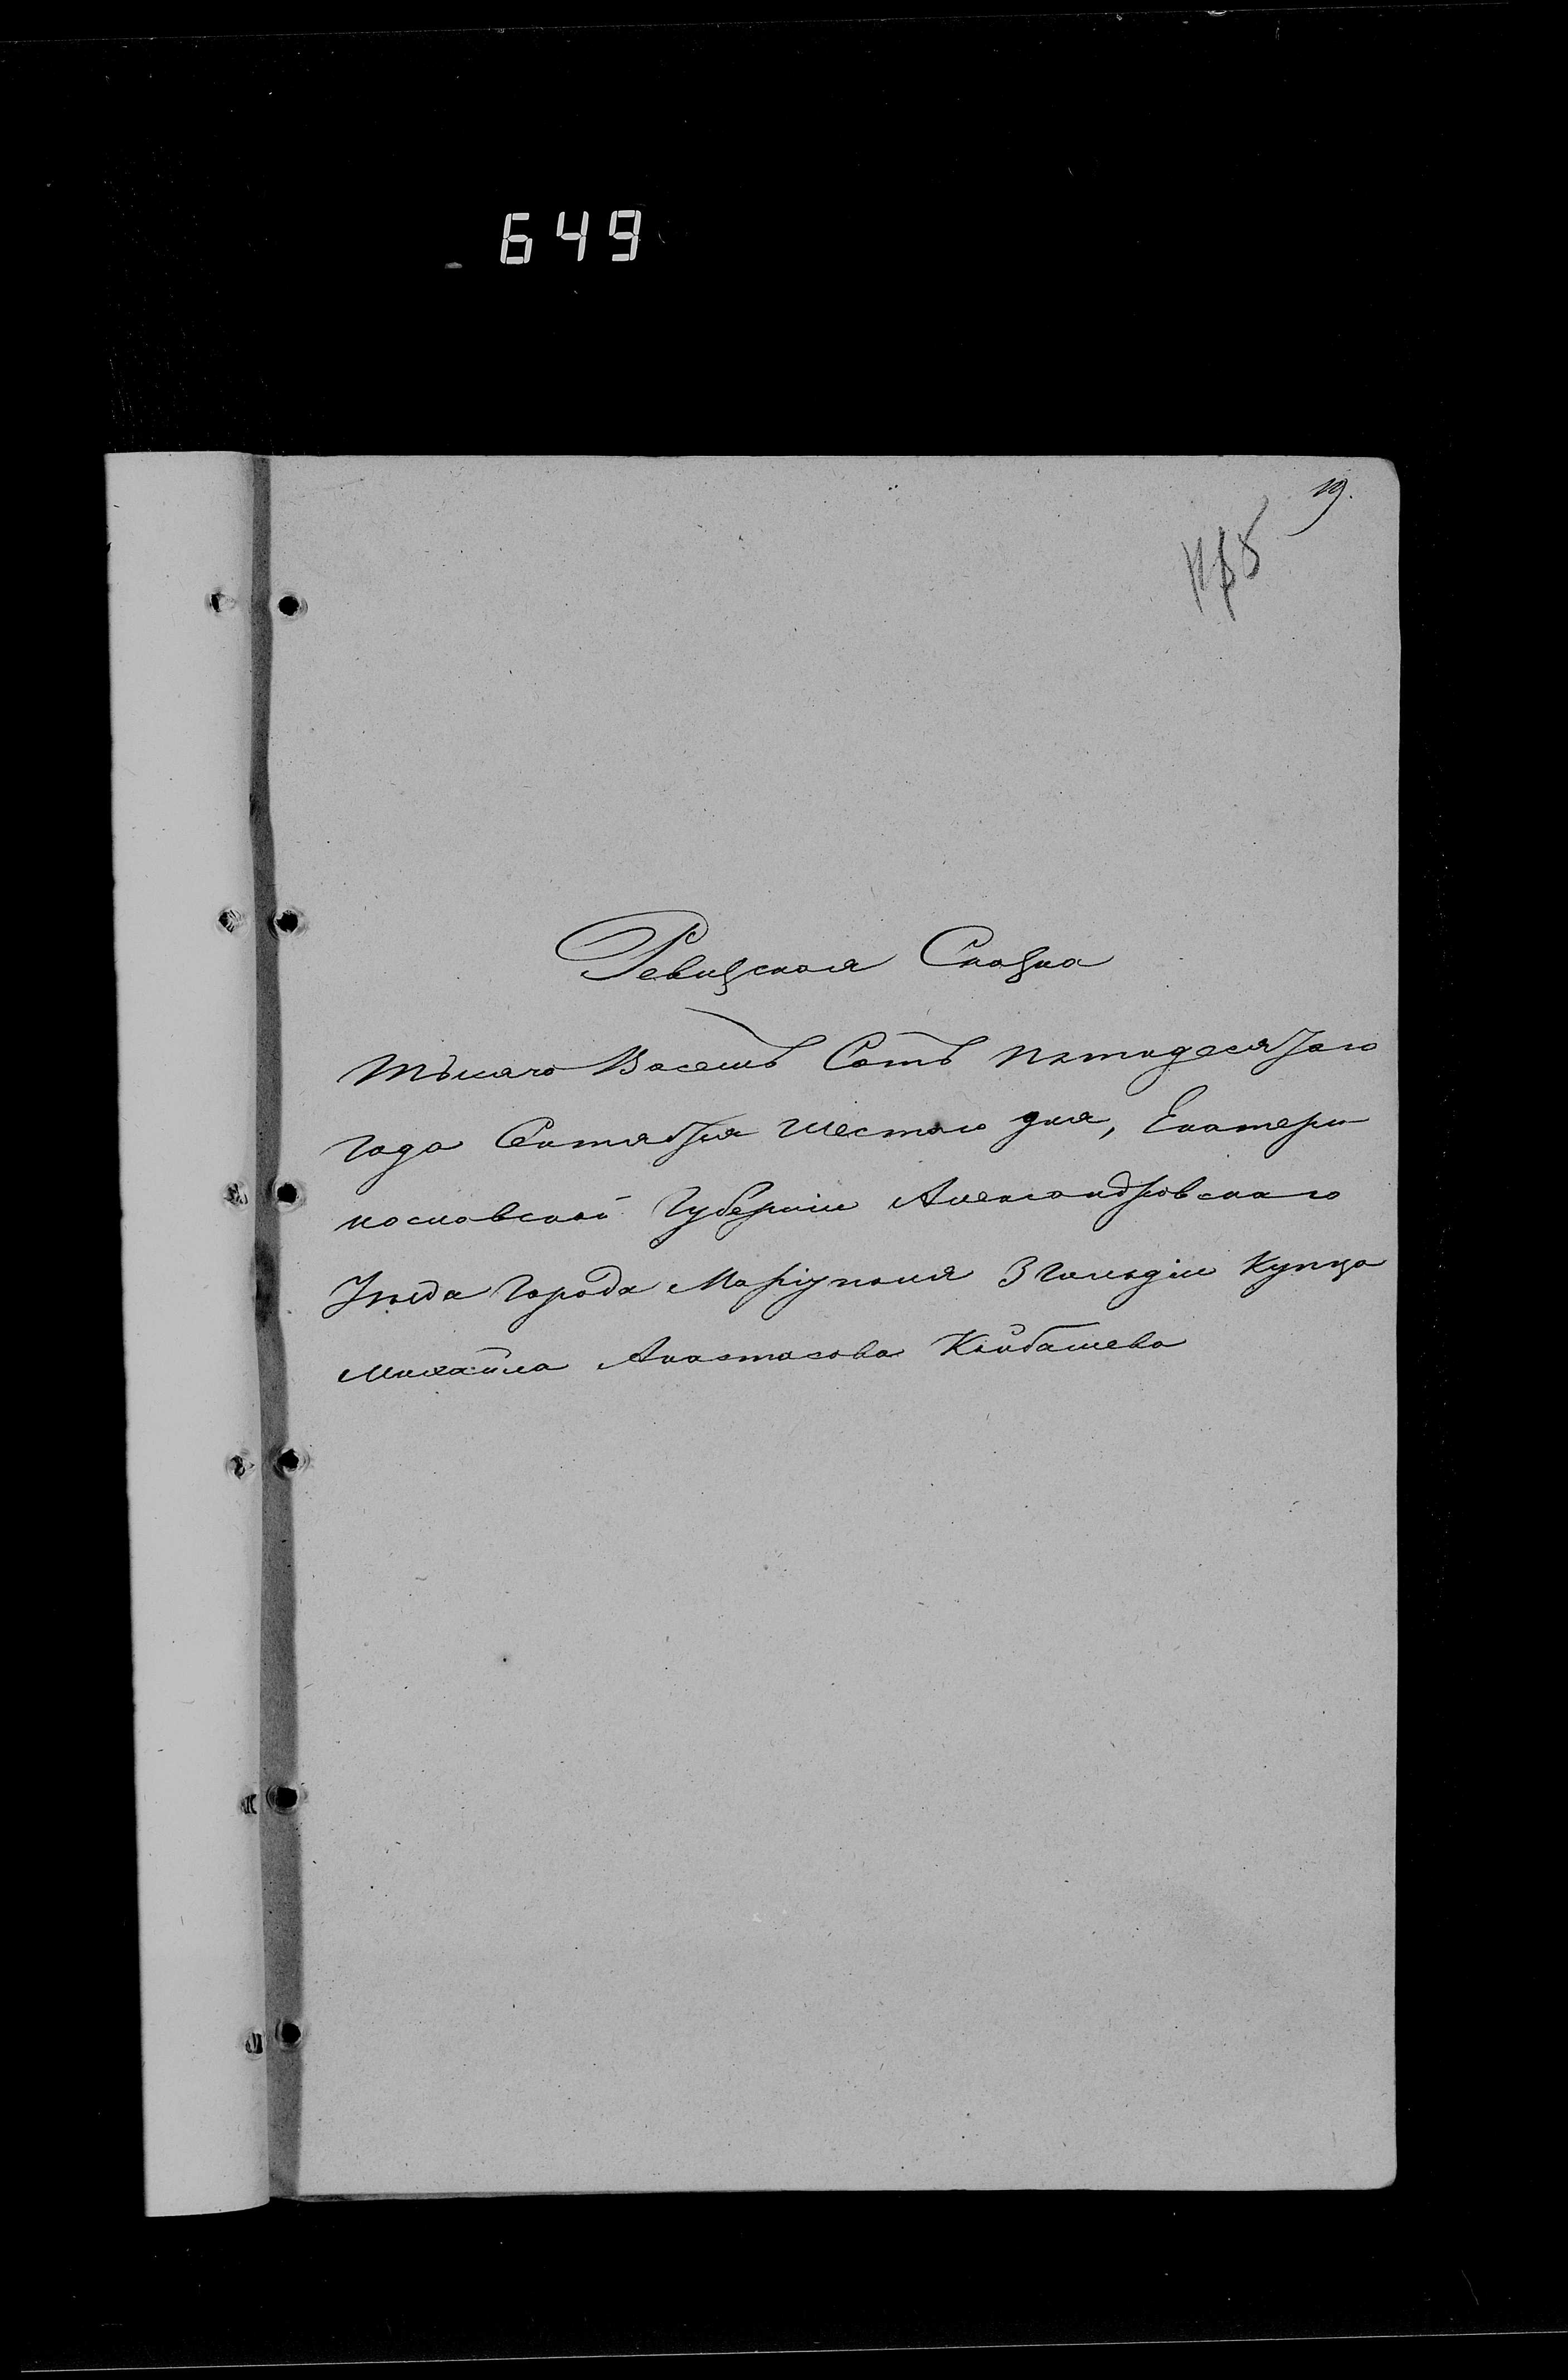 649
19.
Ревизская Сказка
Тысяча Восемь Сотъ пятидесятаго
года Сентября шестаго дня, Екатери
нославской Губерніи Александровскаго
Уѣзда Города Маріуполя 3 гильдіи Купца
Михайла Анастасова